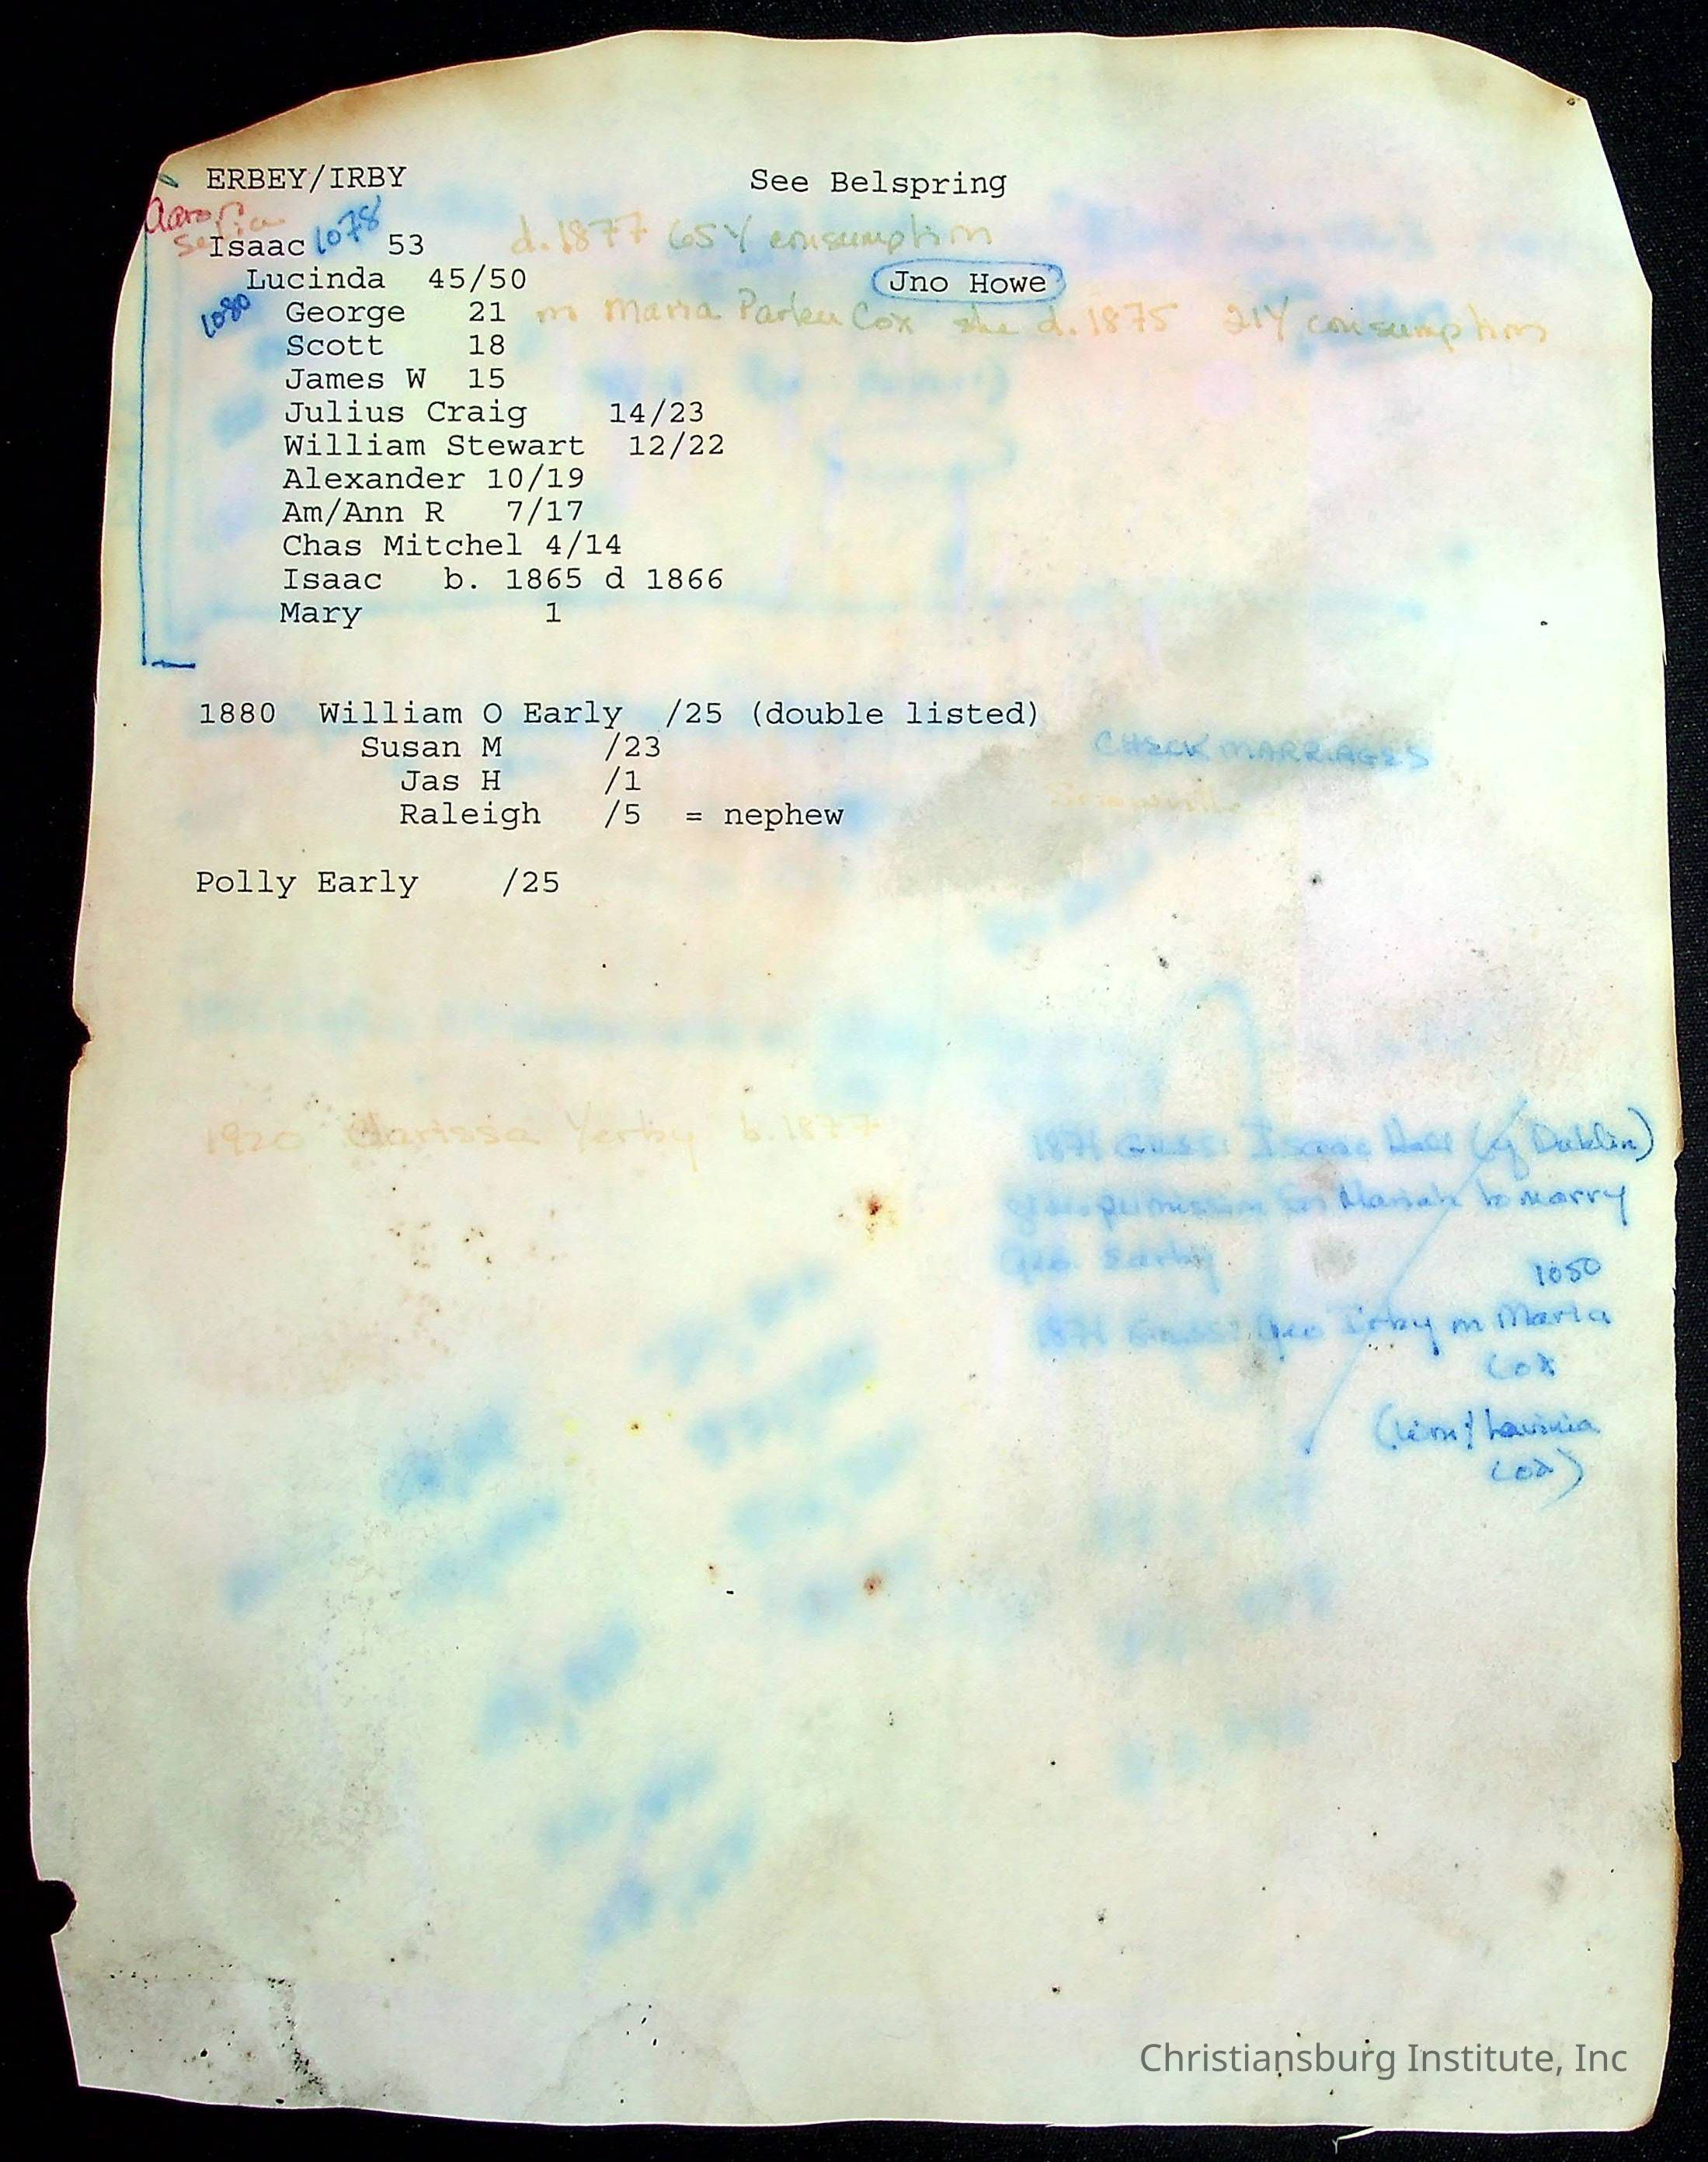 ERBEY/IRBY See Belspring
Isaac 1078 53 d. 1877 65Y consumption
Lucinda 45/50 Jno Howe
1080 George 21 m Maria Parker Cox she d. 1875 21Y consumption
Scott 18
James W 15
Julius Craig 14/23
William Stewart 12/22
Alexander 10/19
Am/Ann R 7/17
Chas Mitchel 4/14
Isaac b. 1865 d 1866
Mary 1
1880 William O Early /25 (double listed)
Susan M /23 CHECK MARRIAGES
Jas H /1
Raleigh /5 = nephew
Polly Early /25
1920 Clarissa Yerby b. 1877
1871 Isaac (of Dublin)
permission for Mariah to marry
Geo
1050
1871 Geo Irby m Maria
Cox
Lavinia
Cox)
Christiansburg Institute, Inc